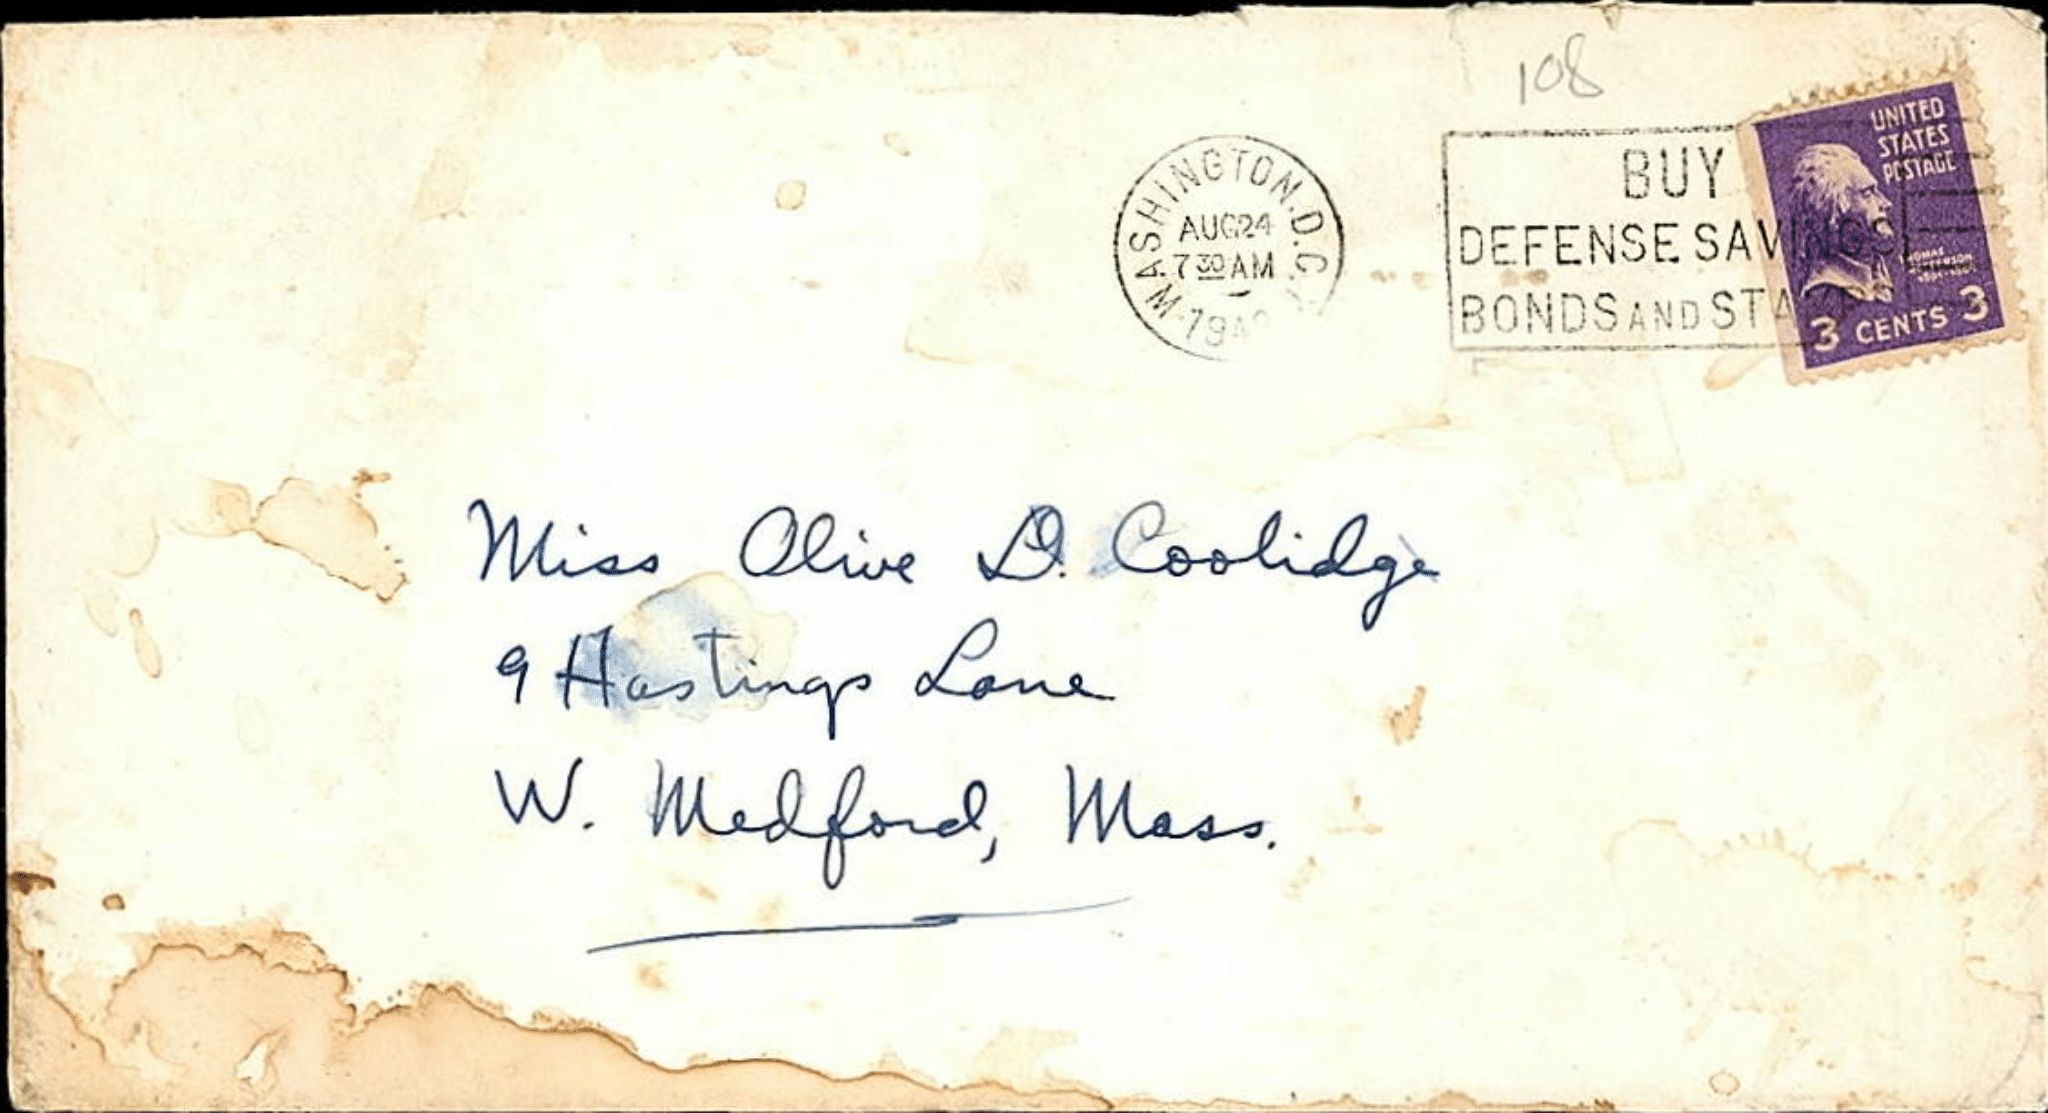 108
WASHINGTON, D.C.
AUG 24
7 30 AM
BUY
DEFENSE SAVINGS
BONDS AND STAMPS
UNITED
STATES
POSTAGE
THOMAS
JEFFERSON
3 CENTS 3
Miss Olive D. Coolidge
9 Hastings Lane
W. Medford, Mass.